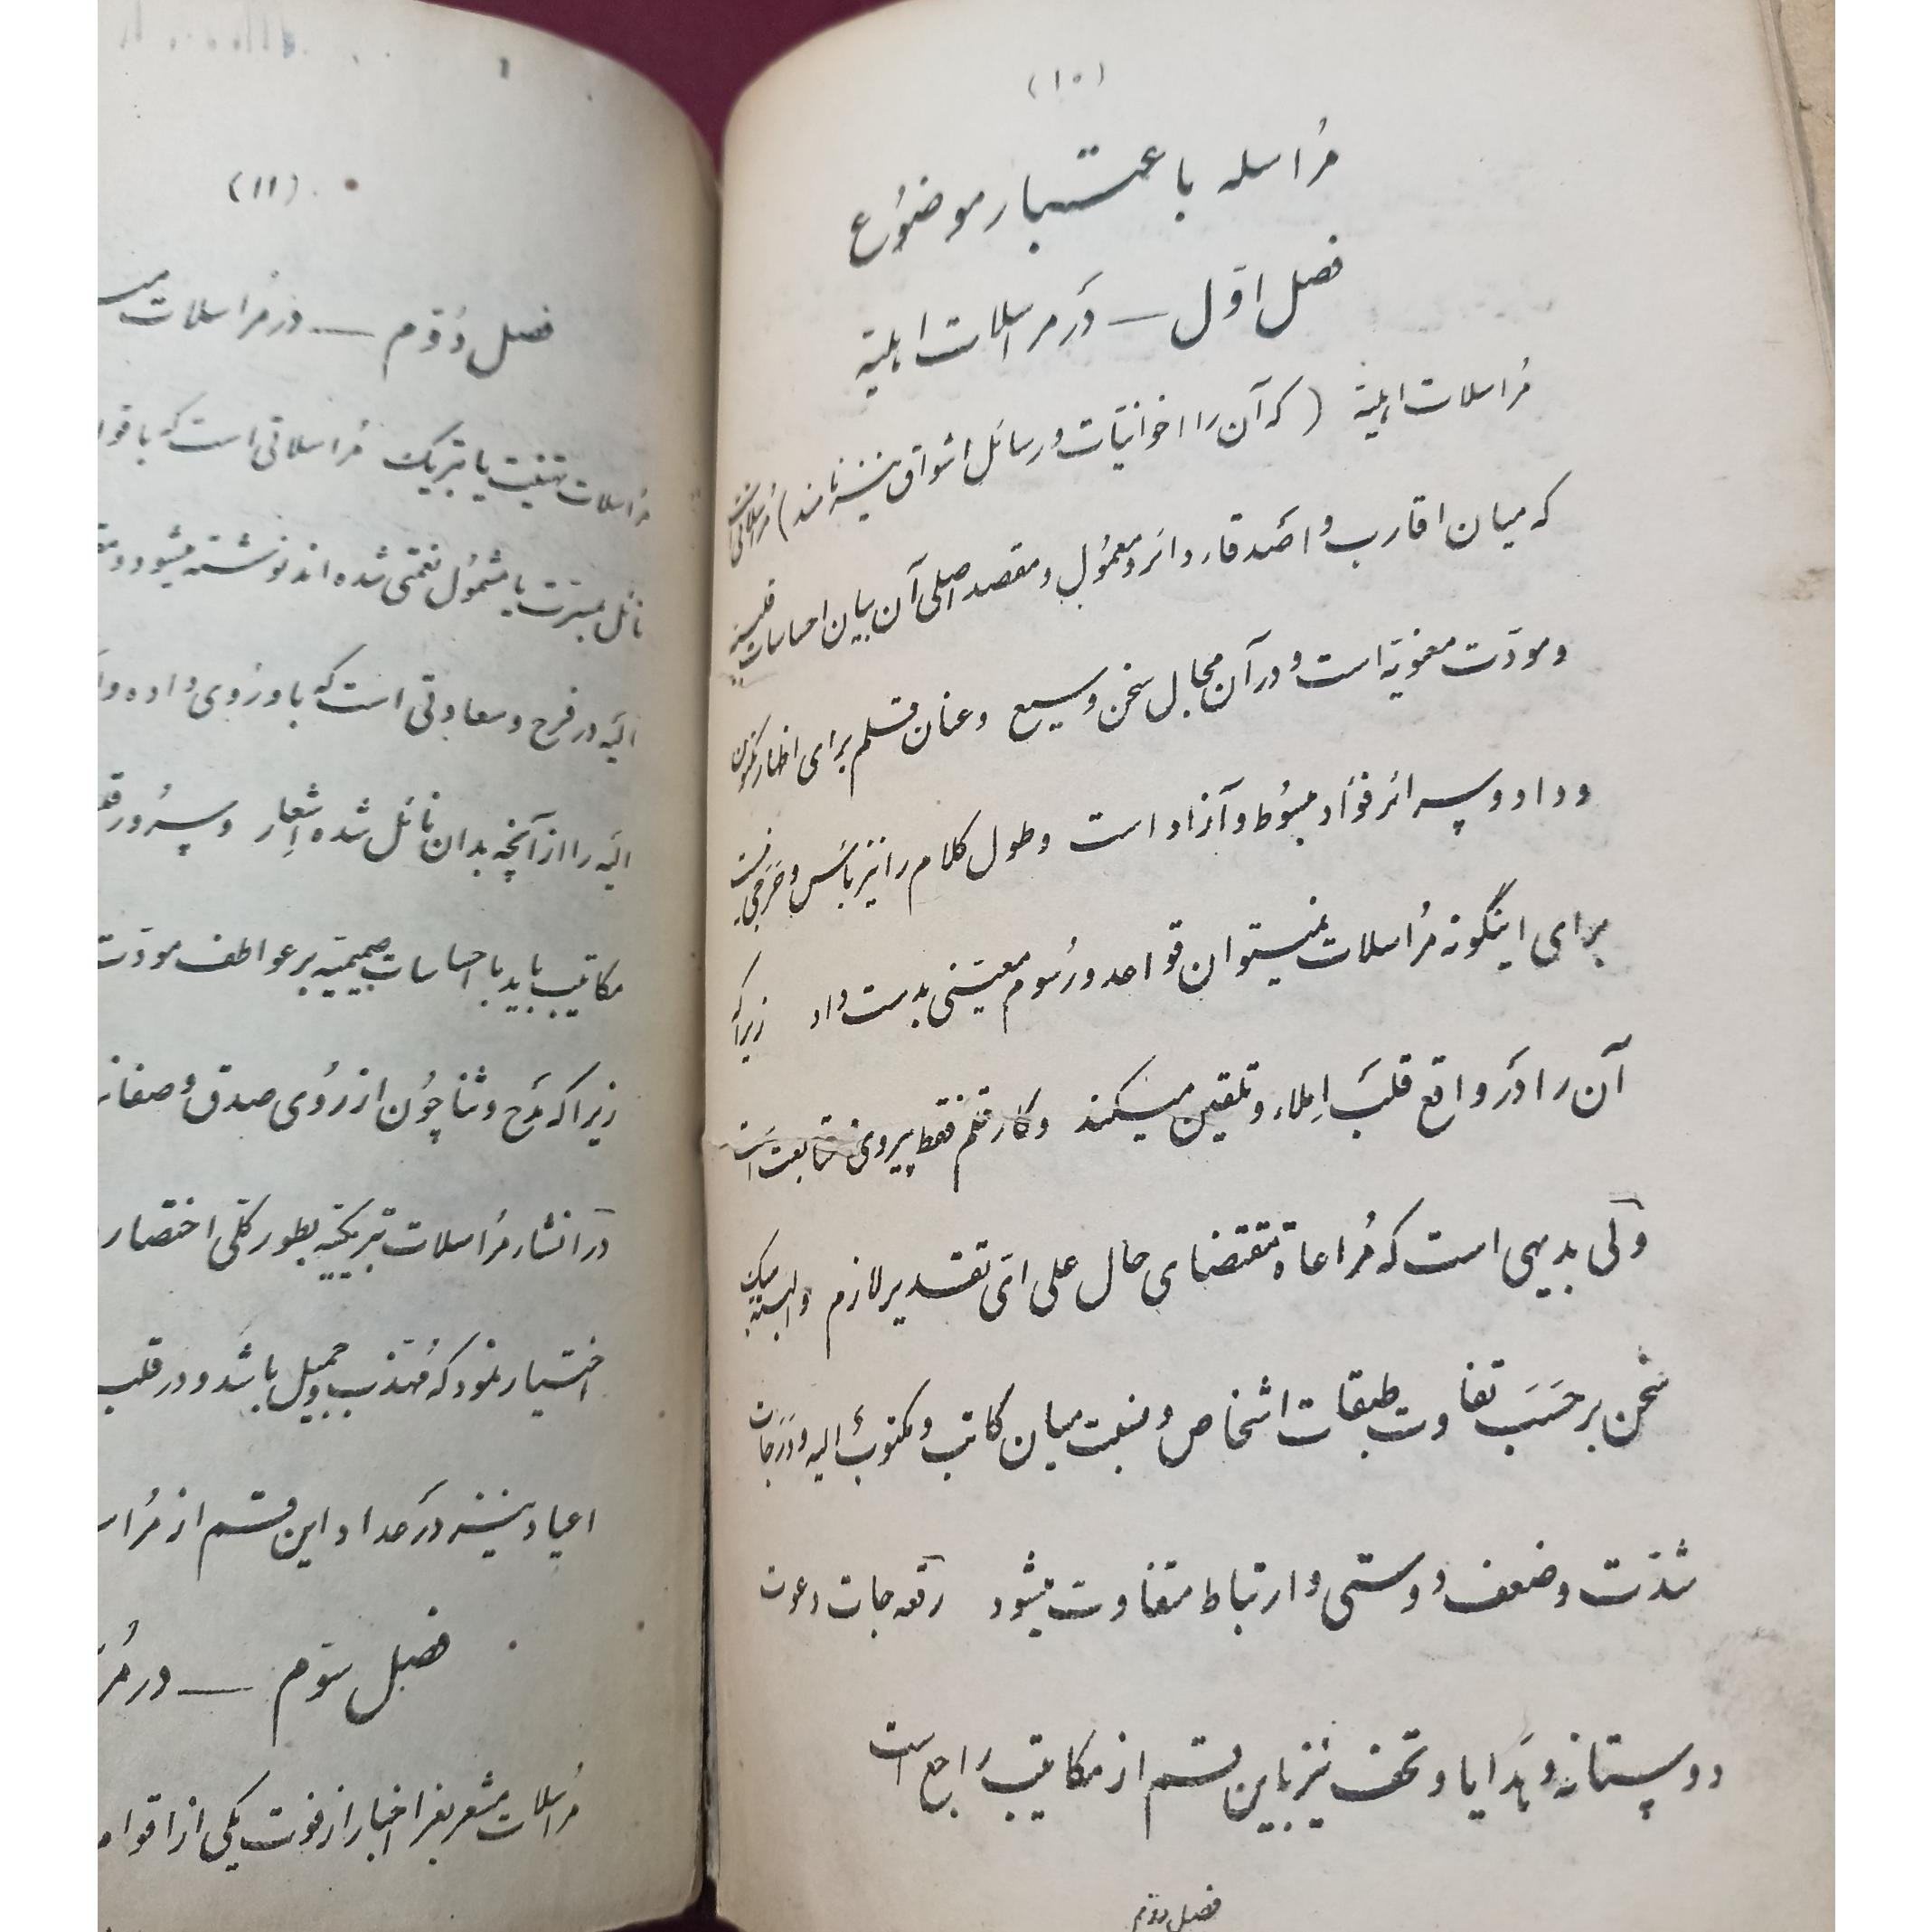 (۱۰)
مُراسله باعتبار موضوُع
فصل اوّل — دَر مراسلات اهلیّه
مُراسلات اهلیّه (که آن را اخوانیّات و رسائل اشواق نیز نامند) مُراسلاتی است
که میان اقارب و اصَدقاء دائر و معموُل و مقصد اصلی آن بیان احساسات قلبیّه
و مودّت معنویّه است و در آن مجال سخن وسیع و عنان قلم برای اظهار مکنون
وداد و سرائر فؤاد مبسُوط و آزاد است و طول کلام را نیز بأسَ و حَرَجی نیست
برای اینگونه مُراسلات نمیتوان قواعد و رُسوم معیّنی بدست داد زیرا که
آن را دَر واقع قلبَ اِملاء و تلقین میکند و کار قلم فقط پیروی و متابعت است
وَلی بدیهی است که مُراعاة مقتضای حال علی ایّ تقدیر لازم و البته سبک
سخن بر حَسَب تفاوت طبقات اشخاص و نسبت میان کاتب و مکتوبٌ الیه و دَرَجات
شدّت و ضعف دوستی و ارتباط متفاوت میشود رقعه جات دعوت
دوستانه و هَدایا و تحف نیز باین قسم از مکاتیب راجع است
فصل دوّم
(۱۱)
فصل دُوّم — در مُراسلات
مُراسلات تهنیت یا تبریک مُراسلاتی است که با
نائل مسرّت یا مشموُل نعمتی شده اند نوشته میشود و
الیه در فرح و سعادتی است که باو رُوی داده و
الیَه را از آنچه بدان نائل شده اِشعار و سُرور
مکاتیب باید با احساسات صمیمیّه بر عواطف مودّت
زیرا که مَدَح و ثنا چُون از رُوی صدق و صفا
دَر انشاء مُراسلات تبریکیّه بطور کلّی اختصار
اختیار نمود که مُهذّب و جمیل باشَد و در قلب
اعیاد نیز در عداد این قسم از
فصل سوّم — در
مُراسلات مشعر بفرا اخبار از فوت یکی از